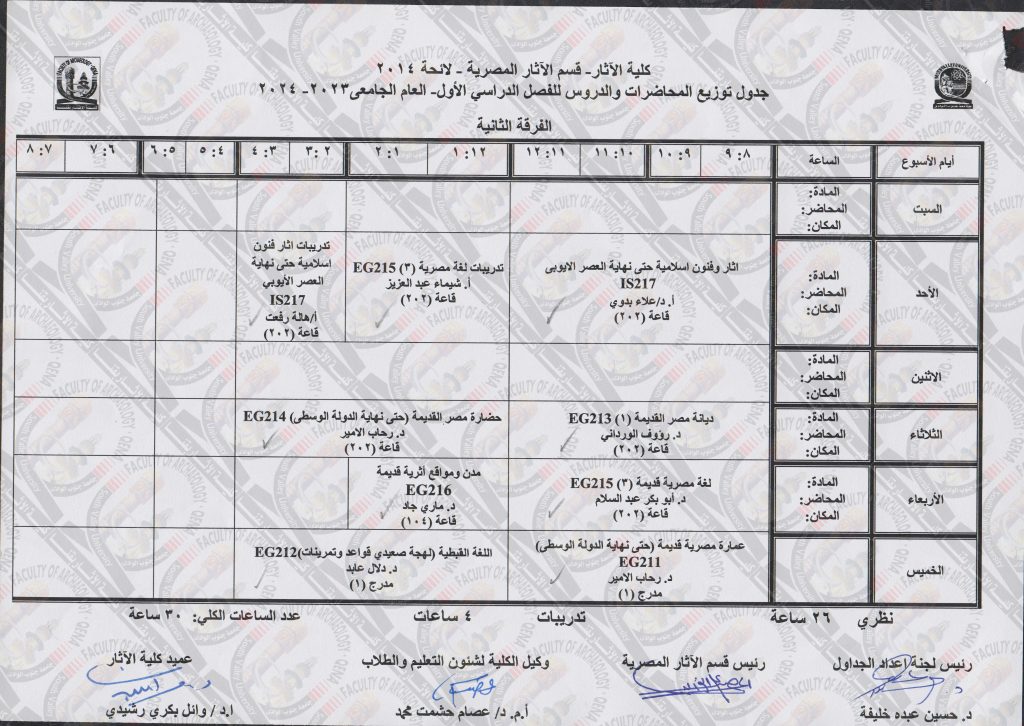 كلية الآثار- قسم الآثار المصرية - لائحة ٢٠١٤
جدول توزيع المحاضرات والدروس للفصل الدراسي الأول- العام الجامعى٢٠٢٣- ٢٠٢٤
الفرقة الثانية
أيام الأسبوع الساعة ٨: ٩ ٩: ١٠ ١٠: ١١ ١١: ١٢ ١٢: ١ ١: ٢ ٢: ٣ ٣: ٤ ٤: ٥ ٥: ٦ ٦: ٧ ٧: ٨
السبت
المادة:
المحاضر:
المكان:
الأحد
المادة:
المحاضر:
المكان:
اثار وفنون اسلامية حتى نهاية العصر الايوبى
IS217
أ. د/علاء بدوي
قاعة (٢٠٢)
تدريبات لغة مصرية (٣) EG215
أ. شيماء عبد العزيز
قاعة (٢٠٢)
تدريبات اثار فنون
اسلامية حتى نهاية
العصر الأيوبي
IS217
أ/هالة رفعت
قاعة (٢٠٢)
الاثنين
المادة:
المحاضر:
المكان:
الثلاثاء
المادة:
المحاضر:
المكان:
ديانة مصر القديمة (١) EG213
د. رؤوف الورداني
قاعة (٢٠٢)
حضارة مصر القديمة (حتى نهاية الدولة الوسطى) EG214
د. رحاب الامير
قاعة (٢٠٢)
الأربعاء
المادة:
المحاضر:
المكان:
لغة مصرية قديمة (٣) EG215
د. أبو بكر عبد السلام
قاعة (٢٠٢)
مدن ومواقع أثرية قديمة
EG216
د. ماري جاد
قاعة (١٠٤)
الخميس
عمارة مصرية قديمة (حتى نهاية الدولة الوسطى)
EG211
د. رحاب الامير
مدرج (١)
اللغة القبطية (لهجة صعيدي قواعد وتمرينات)EG212
د. دلال عابد
مدرج (١)
نظري ٢٦ ساعة تدريبات ٤ ساعات عدد الساعات الكلي: ٣٠ ساعة
رئيس لجنة إعداد الجداول رئيس قسم الآثار المصرية وكيل الكلية لشئون التعليم والطلاب عميد كلية الآثار
د. حسين عبده خليفة أ.م. د/ عصام حشمت محمد ا.د/ وائل بكري رشيدي